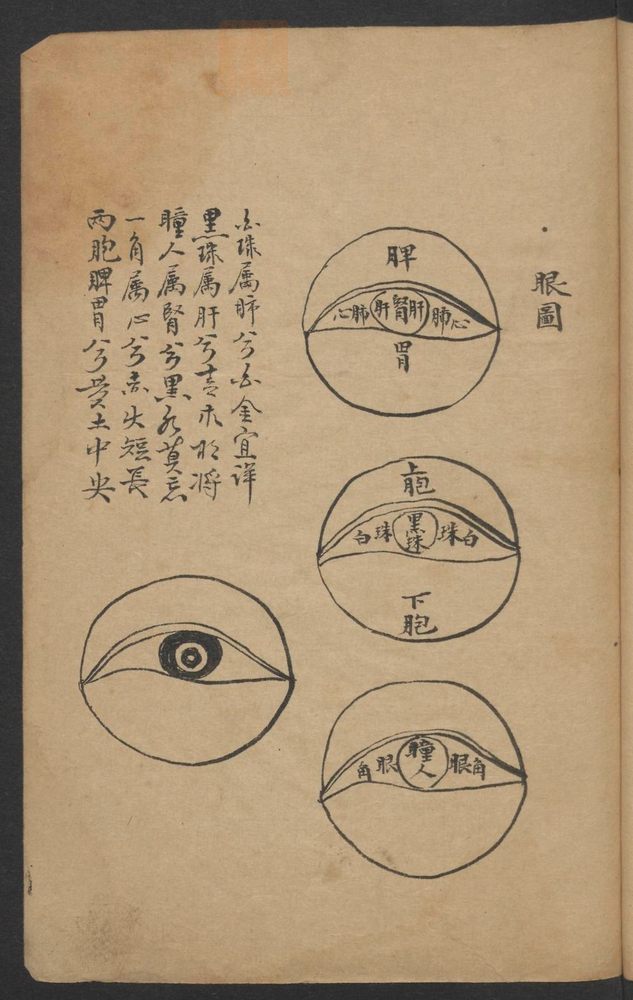 眼圖
脾
心肺肝腎肝肺心
胃
上胞
白珠黑珠珠白
下胞
角眼瞳人眼角
白珠属肺兮白金宜详
黑珠属肝兮青木将
瞳人属腎兮黑水莫忘
一角属心兮赤火短長
两胞脾胃兮黄土中央